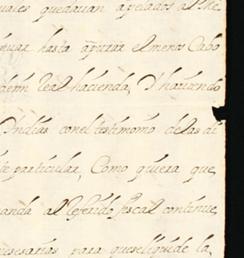 quedavan apelados al Re
hasta apurar el menor Cabo
Real hacienda, I haviendo
Indias con el testimonio de las di
particular, Como quiera que
al referido fiscal continue
para que se liquide la